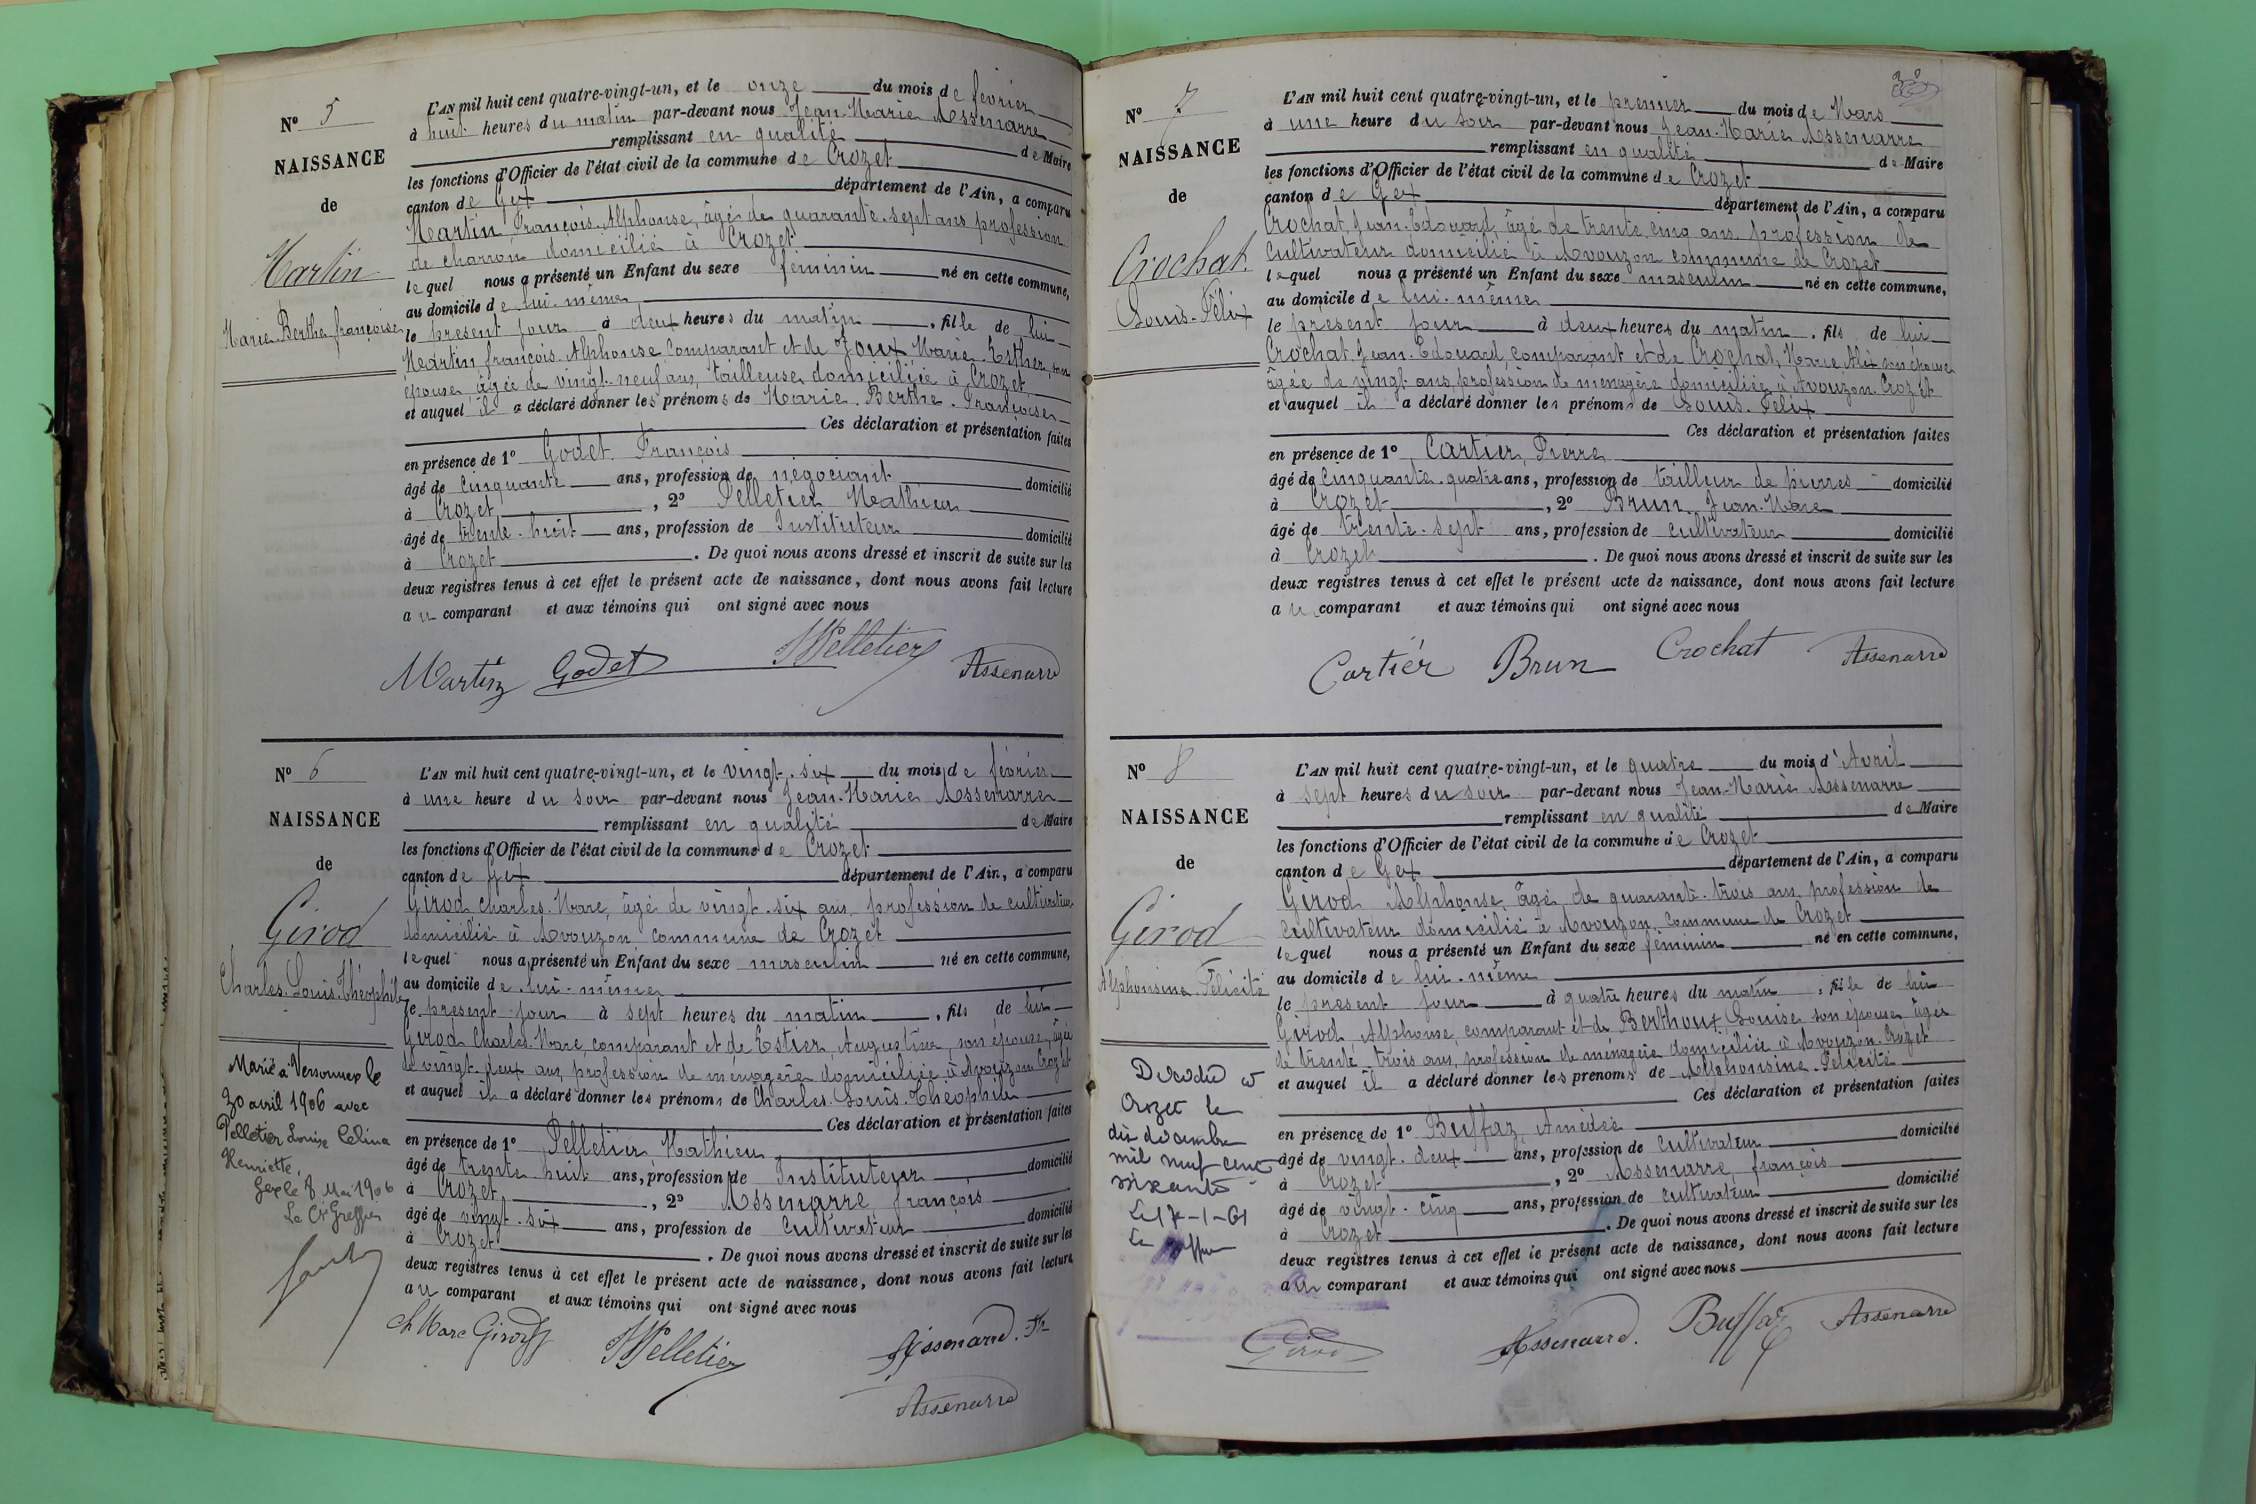 N° 5
NAISSANCE
de
Martin
Marie Berthe françoise
L'AN mil huit cent quatre-vingt-un, et le onze du mois de février
à huit heures du matin par-devant nous Jean-Marie Assenarre
remplissant en qualité de Maire
les fonctions d'Officier de l'état civil de la commune de Crozet
canton de Gex département de l'Ain, a comparu
Martin François-Alphonse, âgé de quarante-sept ans profession
de charron domicilié à Crozet
lequel nous a présenté un Enfant du sexe féminin né en cette commune,
au domicile de lui-même
le présent jour à deux heures du matin, fille de lui
Martin françois-Alphonse comparant et de Joux Marie-Esther, son
épouse, âgée de vingt-neuf ans, tailleuse domiciliée à Crozet
et auquel il a déclaré donner les prénoms de Marie-Berthe-Françoise
Ces déclaration et présentation faites
en présence de 1° Godet François
âgé de cinquante ans, profession de négociant domicilié
à Crozet, 2° Pelletier Mathieu
âgé de trente-huit ans, profession de Instituteur domicilié
à Crozet. De quoi nous avons dressé et inscrit de suite sur les
deux registres tenus à cet effet le présent acte de naissance, dont nous avons fait lecture
au comparant et aux témoins qui ont signé avec nous
Martin Godet Pelletier Assenarre
N° 6
NAISSANCE
de
Girod
Charles-Louis-Théophile
Marié à Versonnex le
30 avril 1906 avec
Pelletier Louise Célina
Henriette.
Gex le 8 Mai 1906
Le Cs Greffier
L'AN mil huit cent quatre-vingt-un, et le vingt-six du mois de février
à une heure du soir par-devant nous Jean-Marie Assenarre
remplissant en qualité de Maire
les fonctions d'Officier de l'état civil de la commune de Crozet
canton de Gex département de l'Ain, a comparu
Girod Charles-Marc, âgé de vingt-six ans, profession de cultivateur
domicilié à Avouzon commune de Crozet
lequel nous a présenté un Enfant du sexe masculin né en cette commune,
au domicile de lui-même
le présent jour à sept heures du matin, fils de lui
Girod Charles-Marc, comparant et de Estier, Augustine, son épouse, âgée
de vingt-deux ans, profession de ménagère domiciliée à Avouzon Crozet
et auquel il a déclaré donner les prénoms de Charles-Louis-Théophile
Ces déclaration et présentation faites
en présence de 1° Pelletier Mathieu
âgé de trente huit ans, profession de Instituteur domicilié
à Crozet, 2° Assenarre françois
âgé de vingt-six ans, profession de cultivateur domicilié
à Crozet. De quoi nous avons dressé et inscrit de suite sur les
deux registres tenus à cet effet le présent acte de naissance, dont nous avons fait lecture
au comparant et aux témoins qui ont signé avec nous
Ch Marc Girod Pelletier Assenarre. Fs
Assenarre
N° 7
NAISSANCE
de
Crochat
Louis-Félix
L'AN mil huit cent quatre-vingt-un, et le premier du mois de Mars
à une heure du soir par-devant nous Jean-Marie Assenarre
remplissant en qualité de Maire
les fonctions d'Officier de l'état civil de la commune de Crozet
canton de Gex département de l'Ain, a comparu
Crochat Jean-Edouard, âgé de trente cinq ans profession de
cultivateur domicilié à Avouzon commune de Crozet
lequel nous a présenté un Enfant du sexe masculin né en cette commune,
au domicile de lui-même
le présent jour à deux heures du matin, fils de lui
Crochat Jean-Edouard, comparant et de Crochat, Marie Alix son épouse
âgée de vingt ans, profession de ménagère domiciliée à Avouzon Crozet
et auquel il a déclaré donner les prénoms de Louis-Félix
Ces déclaration et présentation faites
en présence de 1° Cartier, Pierre
âgé de cinquante-quatre ans, profession de tailleur de pierres domicilié
à Crozet, 2° Brun Jean-Marc
âgé de trente-sept ans, profession de cultivateur domicilié
à Crozet. De quoi nous avons dressé et inscrit de suite sur les
deux registres tenus à cet effet le présent acte de naissance, dont nous avons fait lecture
au comparant et aux témoins qui ont signé avec nous
Cartier Brun Crochat Assenarre
N° 8
NAISSANCE
de
Girod
Alphonsine-Félicité
Décédée à
Crozet le
dix décembre
mil neuf cent
soixante
Le 17-1-61
Le Greffier
L'AN mil huit cent quatre-vingt-un, et le quatre du mois d'Avril
à sept heures du soir par-devant nous Jean-Marie Assenarre
remplissant en qualité de Maire
les fonctions d'Officier de l'état civil de la commune de Crozet
canton de Gex département de l'Ain, a comparu
Girod Alphonse, âgé de quarante-trois ans, profession de
cultivateur domicilié à Avouzon, commune de Crozet
lequel nous a présenté un Enfant du sexe féminin né en cette commune,
au domicile de lui-même
le présent jour à quatre heures du matin, fille de lui
Girod, Alphonse, comparant et de Berthoux, Louise son épouse âgée
de trente-trois ans, profession de ménagère domiciliée à Avouzon Crozet
et auquel il a déclaré donner les prénoms de Alphonsine-Félicité
Ces déclaration et présentation faites
en présence de 1° Buffaz, Amédée
âgé de vingt-deux ans, profession de cultivateur domicilié
à Crozet, 2° Assenarre, françois
âgé de vingt-cinq ans, profession de cultivateur domicilié
à Crozet. De quoi nous avons dressé et inscrit de suite sur les
deux registres tenus à cet effet le présent acte de naissance, dont nous avons fait lecture
au comparant et aux témoins qui ont signé avec nous
Girod Assenarre. Buffaz Assenarre